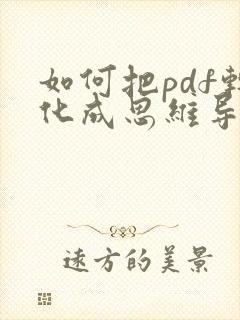 如何把pdf转
化成思维导
远方的美景